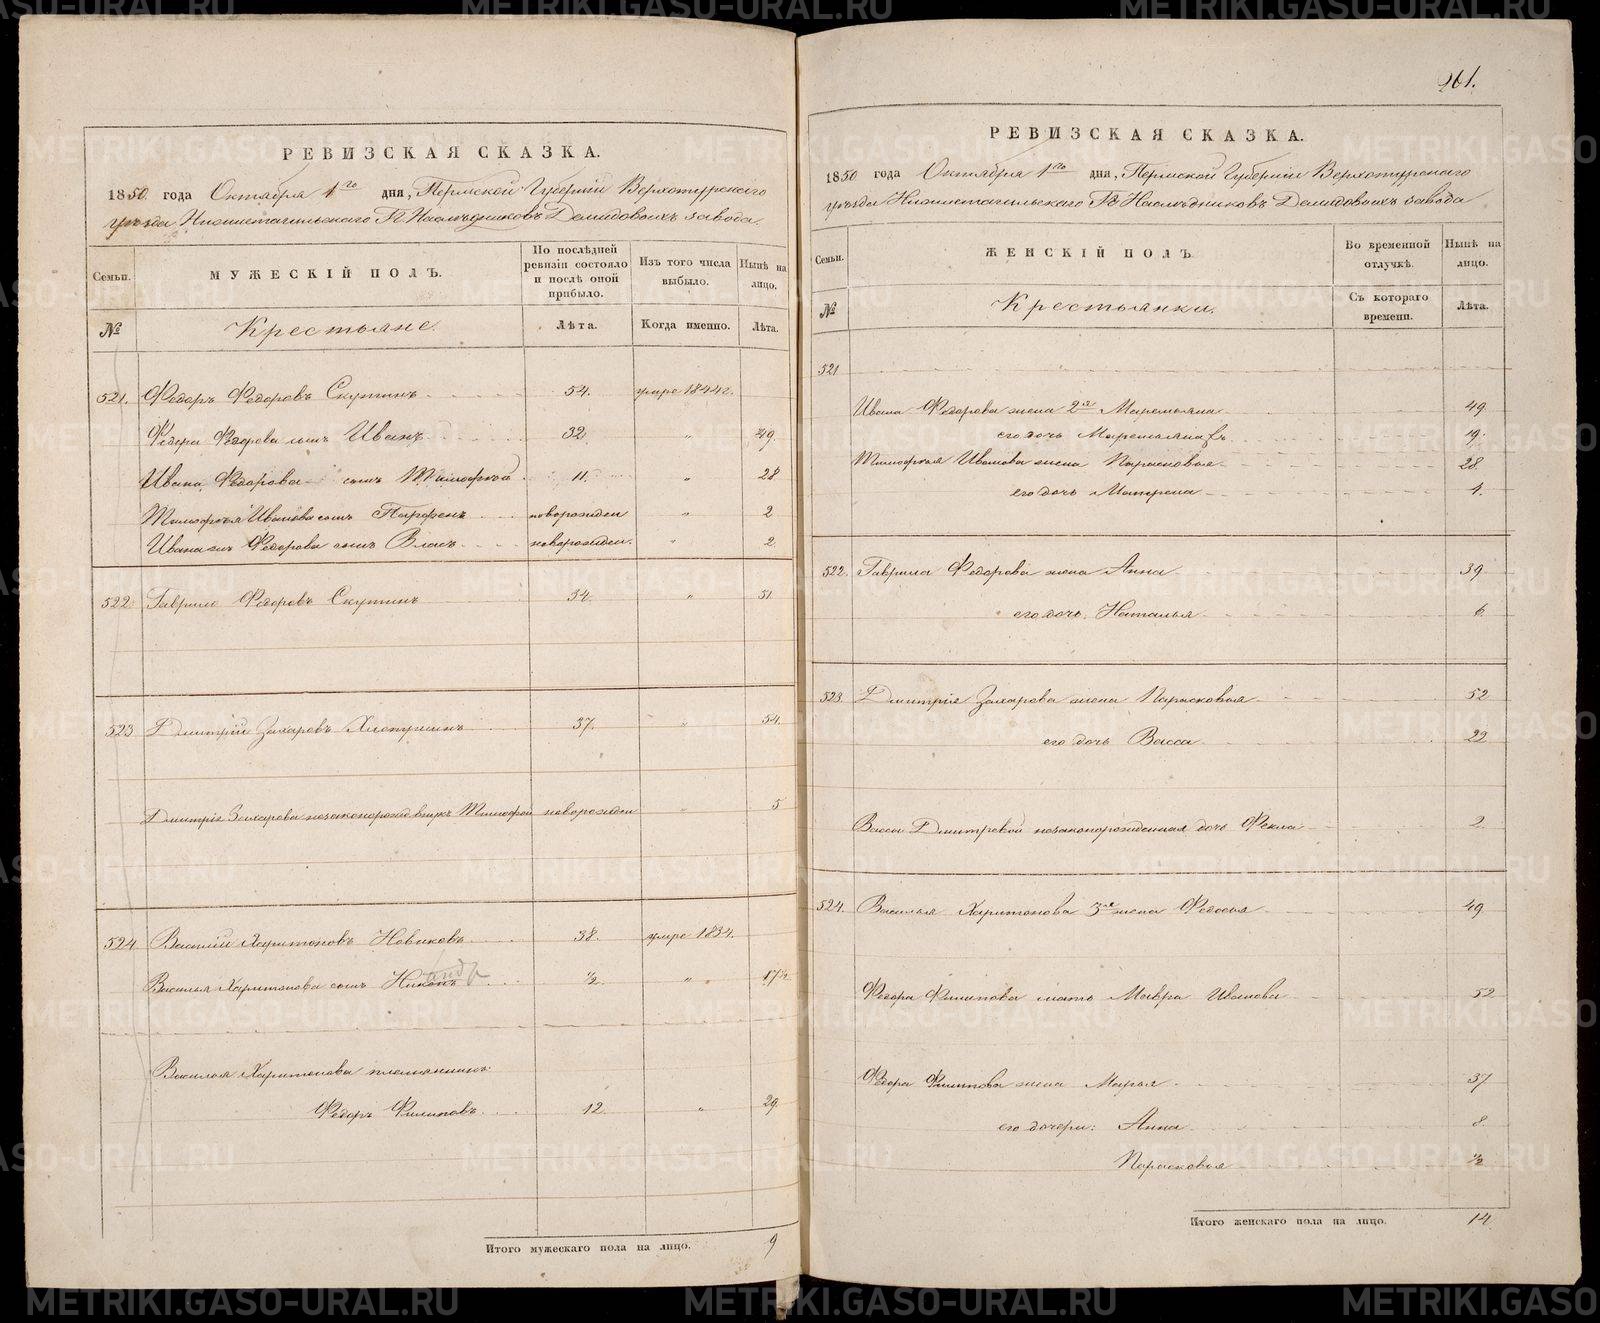 РЕВИЗСКАЯ СКАЗКА.
1850 года Октября 1го дня, Пермской Губерніи Верхотурскаго
уѣзда Нижнетагильскаго Гг. Наслѣдниковъ Демидовыхъ завода
Семьи.
МУЖЕСКІЙ ПОЛЪ.
По послѣдней ревизіи состояло и послѣ оной прибыло.
Изъ того числа выбыло.
Нынѣ на лицо.
№ Крестьяне. Лѣта. Когда именно. Лѣта.
521. Ѳедоръ Ѳедоровъ Скутинъ 54. умре 1844г.
Ѳедора Ѳедорова сынъ Иванъ 32 " 49
Ивана Ѳедорова сынъ Тимофей 11 " 28
Тимофея Иванова сынъ Парфенъ новорожден " 2
Ивана Ѳедорова сынъ Власъ новорожден. " 2
522 Гаврило Ѳедоровъ Скутинъ 34 " 51
523 Дмитрій Захаровъ 37. " 54
Дмитрія Захарова незаконорожд внукъ Тимофей новорожден " 5
524 Василій Харитоновъ Новиковъ 38. умре 1834.
Василья Харитонова сынъ Никонъ ½ " 17½
Василья Харитонова племянникъ
Ѳедоръ Филиповъ 12 " 29
Итого мужескаго пола на лицо. 9
261.
РЕВИЗСКАЯ СКАЗКА.
1850 года Октября 1го дня, Пермской Губерніи Верхотурскаго
уѣзда Нижнетагильскаго Гг. Наслѣдниковъ Демидовыхъ завода
Семьи.
ЖЕНСКІЙ ПОЛЪ
Во временной отлучкѣ.
Нынѣ на лицо.
№ Крестьянки. Съ котораго времени. Лѣта.
521
Ивана Ѳедорова жена 2я Маремьяна 49
его дочь Маремьяна 19.
Тимофея Иванова жена Парасковья 28
его дочь Матрена 4.
522. Гаврила Ѳедорова жена Анна 39
его дочь Наталья 6
523. Дмитрія Захарова жена Парасковья 52
его дочь Васса 22
Вассы Дмитревой незаконорожденная дочь Фекла 2
524. Василья Харитонова 3я жена Федосья 49
Ѳедора Филипова мать Мавра Иванова 52
Ѳедора Филипова жена Марья 37
его дочери: Анна 8
Парасковья ½
Итого женскаго пола на лицо. 14
METRIKI.GASO-URAL.RU